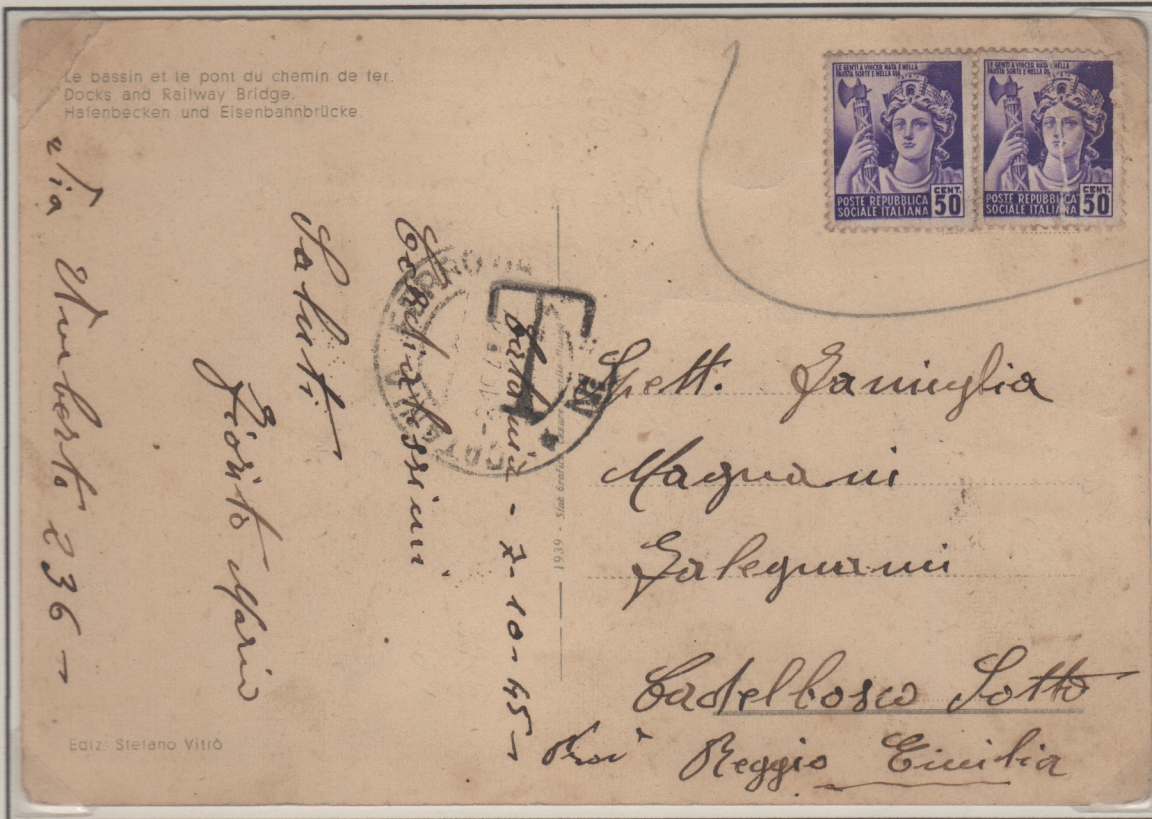 Le bassin et le pont du chemin de fer.
Docks and Railway Bridge.
Hafenbecken und Eisenbahnbrücke.
LE GENTI A VINCER NATA E NELLA
FAUSTA SORTE E NELLA RIA
CENT.
POSTE REPUBBLICA
SOCIALE ITALIANA 50
LE GENTI A VINCER NATA E NELLA
FAUSTA SORTE E NELLA RIA
CENT.
POSTE REPUBBLICA
SOCIALE ITALIANA 50
Catania - 7-10-45-
Cordialissimi
Saluti.
Fiorito Mario
Via Umberto 236-
CATANIA FERROVIA
T
1939 - Stab. Grafico
Spett. Famiglia
Magnani
Falegnami
Cadelbosco Sotto
Prov Reggio Emilia
Ediz. Stefano Vitrò